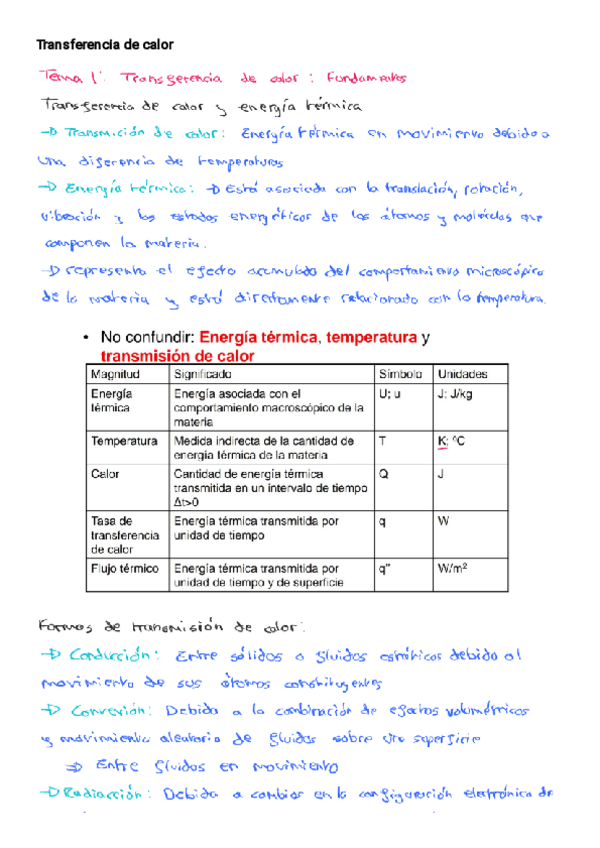 Transferencia de calor
Tema 1: Transferencia de calor: Fundamentos
Transferencia de calor y energía térmica
→ Transmición de calor: Energía térmica en movimiento debido a
una diferencia de temperaturas
→ Energía térmica: → Está asociada con la translación, rotación,
vibración y los estados energéticos de los átomos y moléculas que
componen la materia.
→ representa el efecto acumulado del comportamiento microscópico
de la materia y está directamente relacionado con la temperatura.
• No confundir: Energía térmica, temperatura y
transmisión de calor
Magnitud Significado Símbolo Unidades
Energía térmica Energía asociada con el comportamiento macroscópico de la materia U; u J; J/kg
Temperatura Medida indirecta de la cantidad de energía térmica de la materia T K; ºC
Calor Cantidad de energía térmica transmitida en un intervalo de tiempo Δt>0 Q J
Tasa de transferencia de calor Energía térmica transmitida por unidad de tiempo q W
Flujo térmico Energía térmica transmitida por unidad de tiempo y de superficie q" W/m²
Formas de transmisión de calor:
→ Conducción: Entre sólidos o fluidos estáticos debido al
movimiento de sus átomos constituyentes
→ Convexión: Debida a la combinación de efectos volumétricos
y movimiento aleatorio de fluidos sobre una superficie
⇒ Entre fluidos en movimiento
→ Radiacción: Debida a cambios en la configuración electrónica de